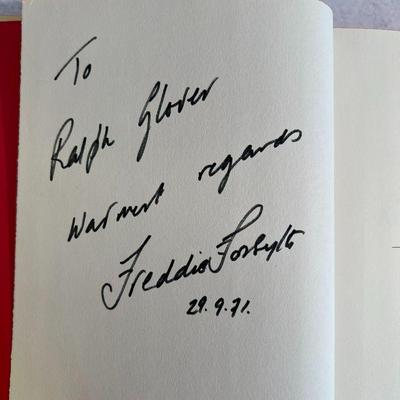 To
Ralph Glover
Warmest regards
Freddie Forsyth
29.9.71.